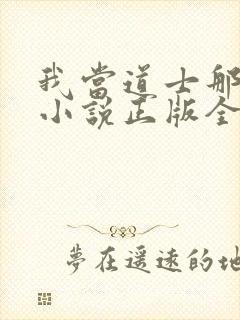 我當道士那
小説正版全
夢在遥遠的地